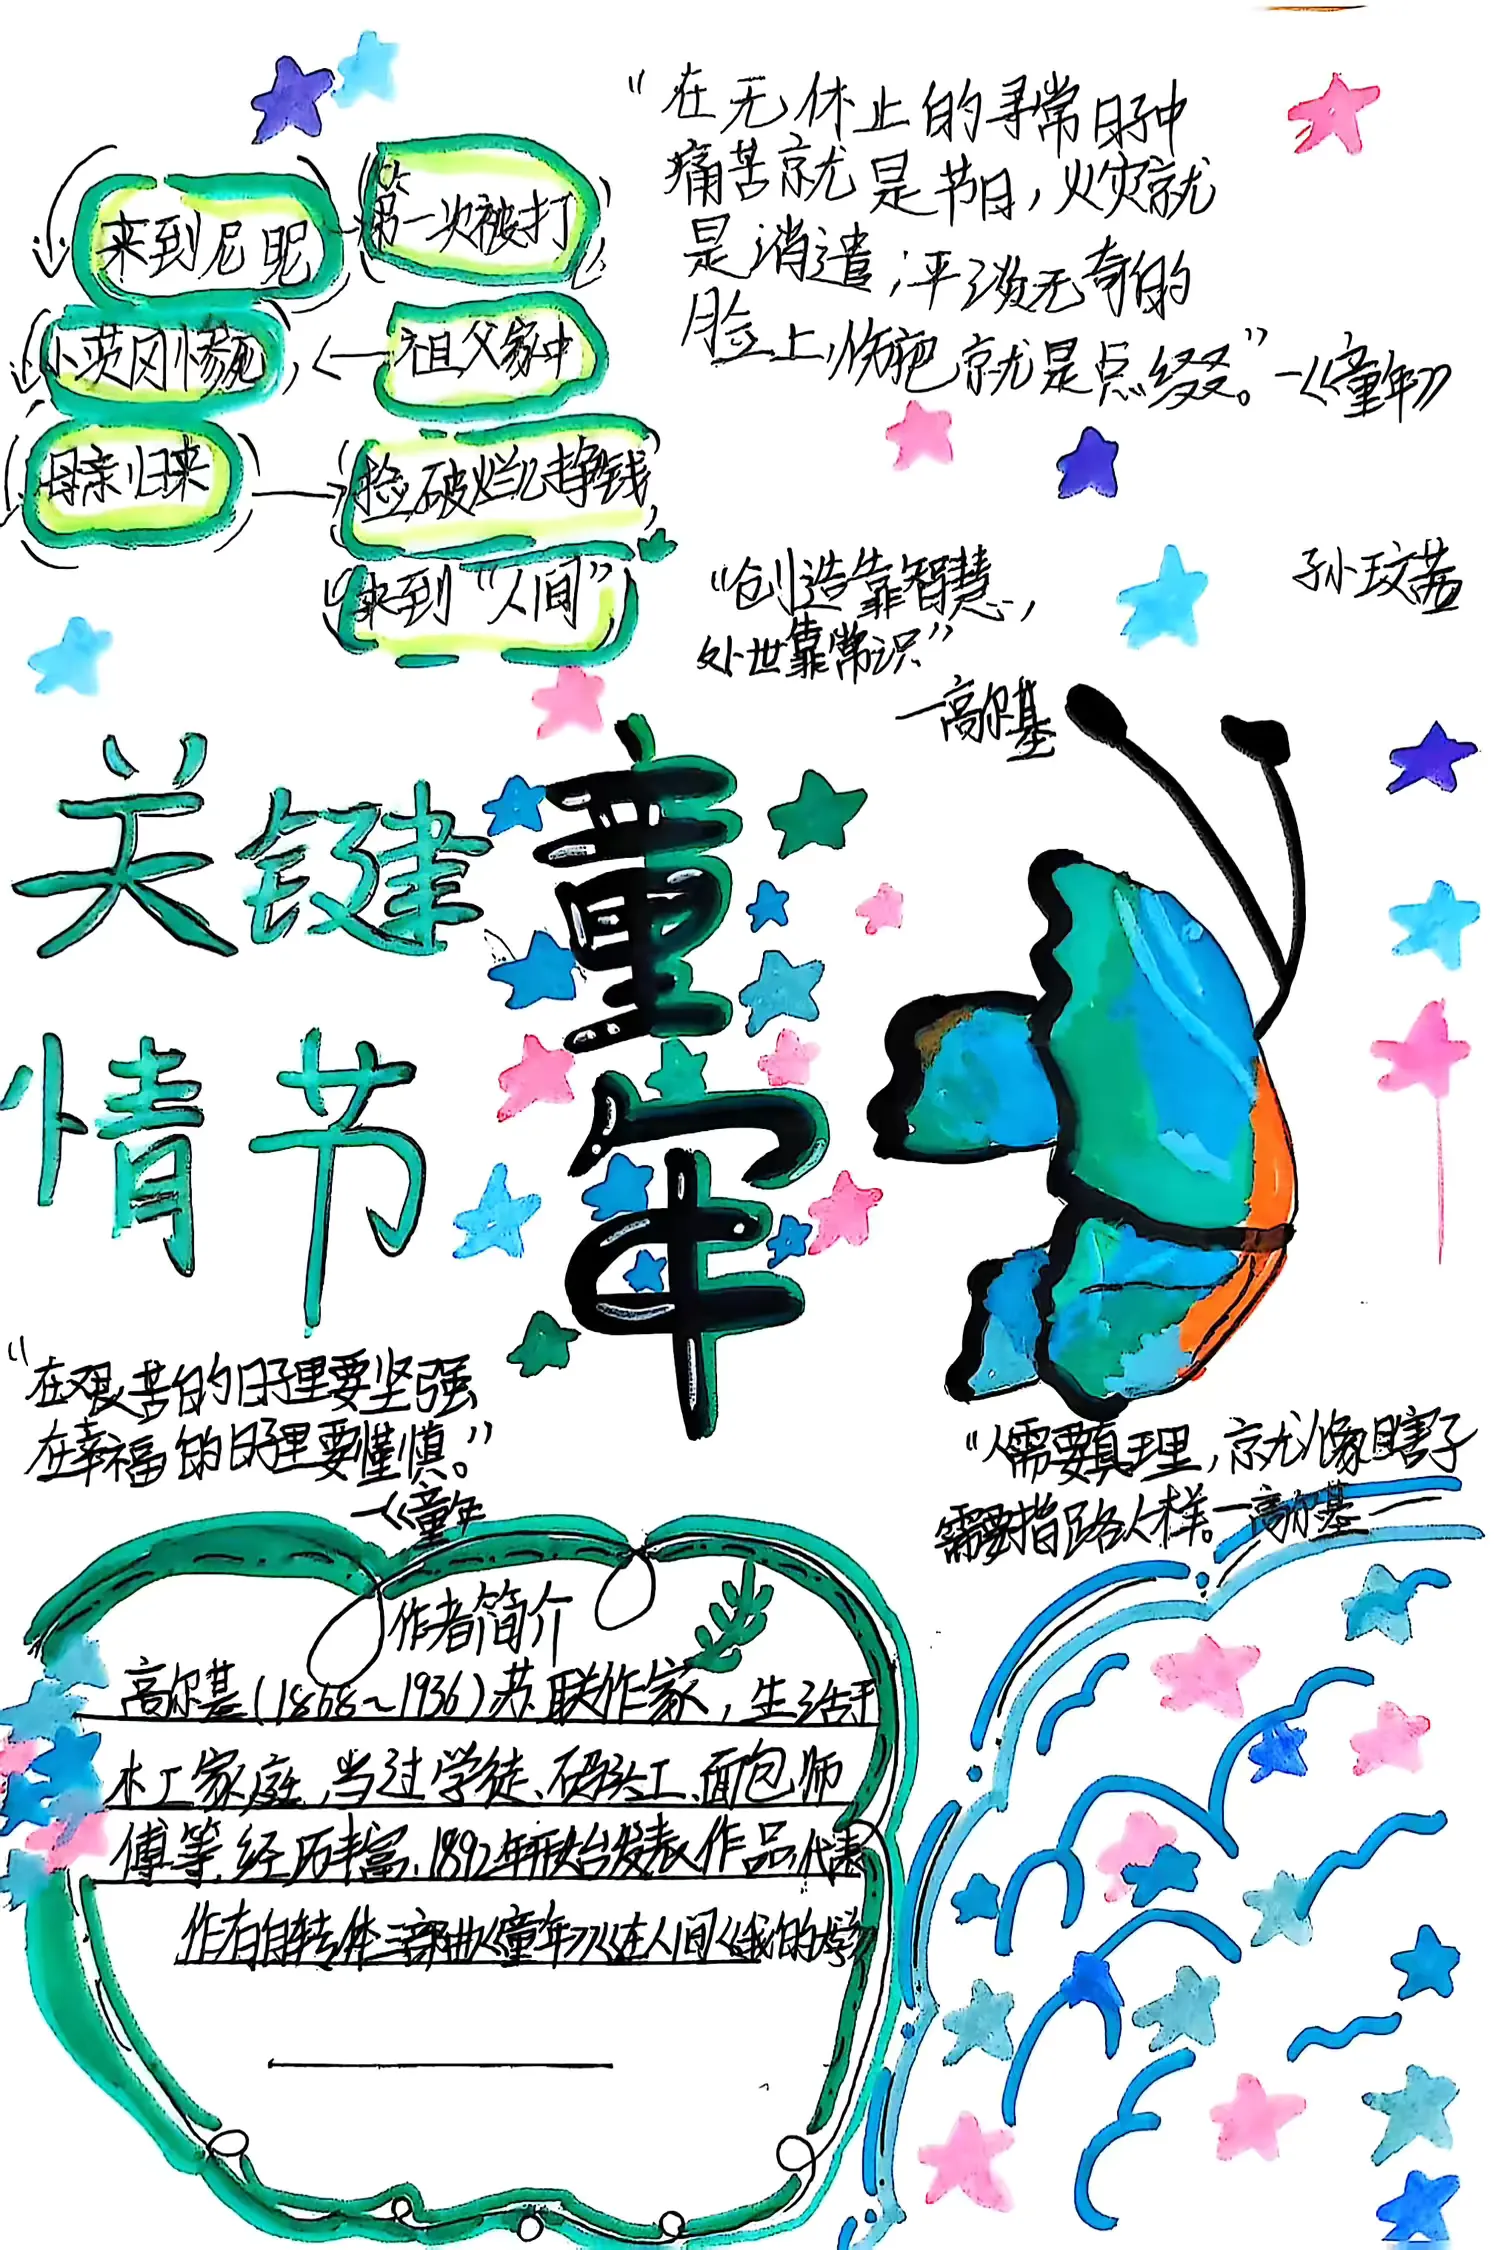 来到尼昵
第一次被打
小茨冈惨死
祖父家中
母亲归来
捡破烂儿挣钱
来到“人间”
“在无休止的寻常日子中
痛苦就是节日，火灾就
是消遣；平淡无奇的
脸上，伤疤就是点缀。”—《童年》
“创造靠智慧，
处世靠常识”
—高尔基
孙玟茜
关键
情节
童年
“在艰苦的日子里要坚强
在幸福的日子里要谨慎。”
—《童年
“人需要真理，就像瞎子
需要指路人样。—高尔基—
作者简介
高尔基（1868～1936）苏联作家，生活于
木工家庭，当过学徒、码头工、面包师
傅等，经历丰富，1892年开始发表作品，代表
作有自转体三部曲《童年》《在人间《我的大学》